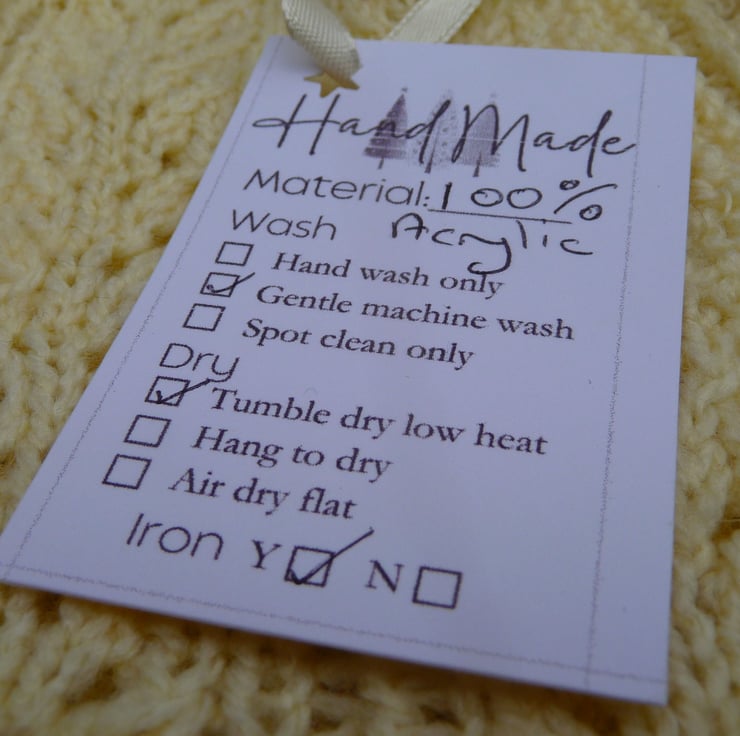 Hand Made
Material: 100%
Wash Acrylic
Hand wash only
Gentle machine wash
Spot clean only
Dry
Tumble dry low heat
Hang to dry
Air dry flat
Iron Y N